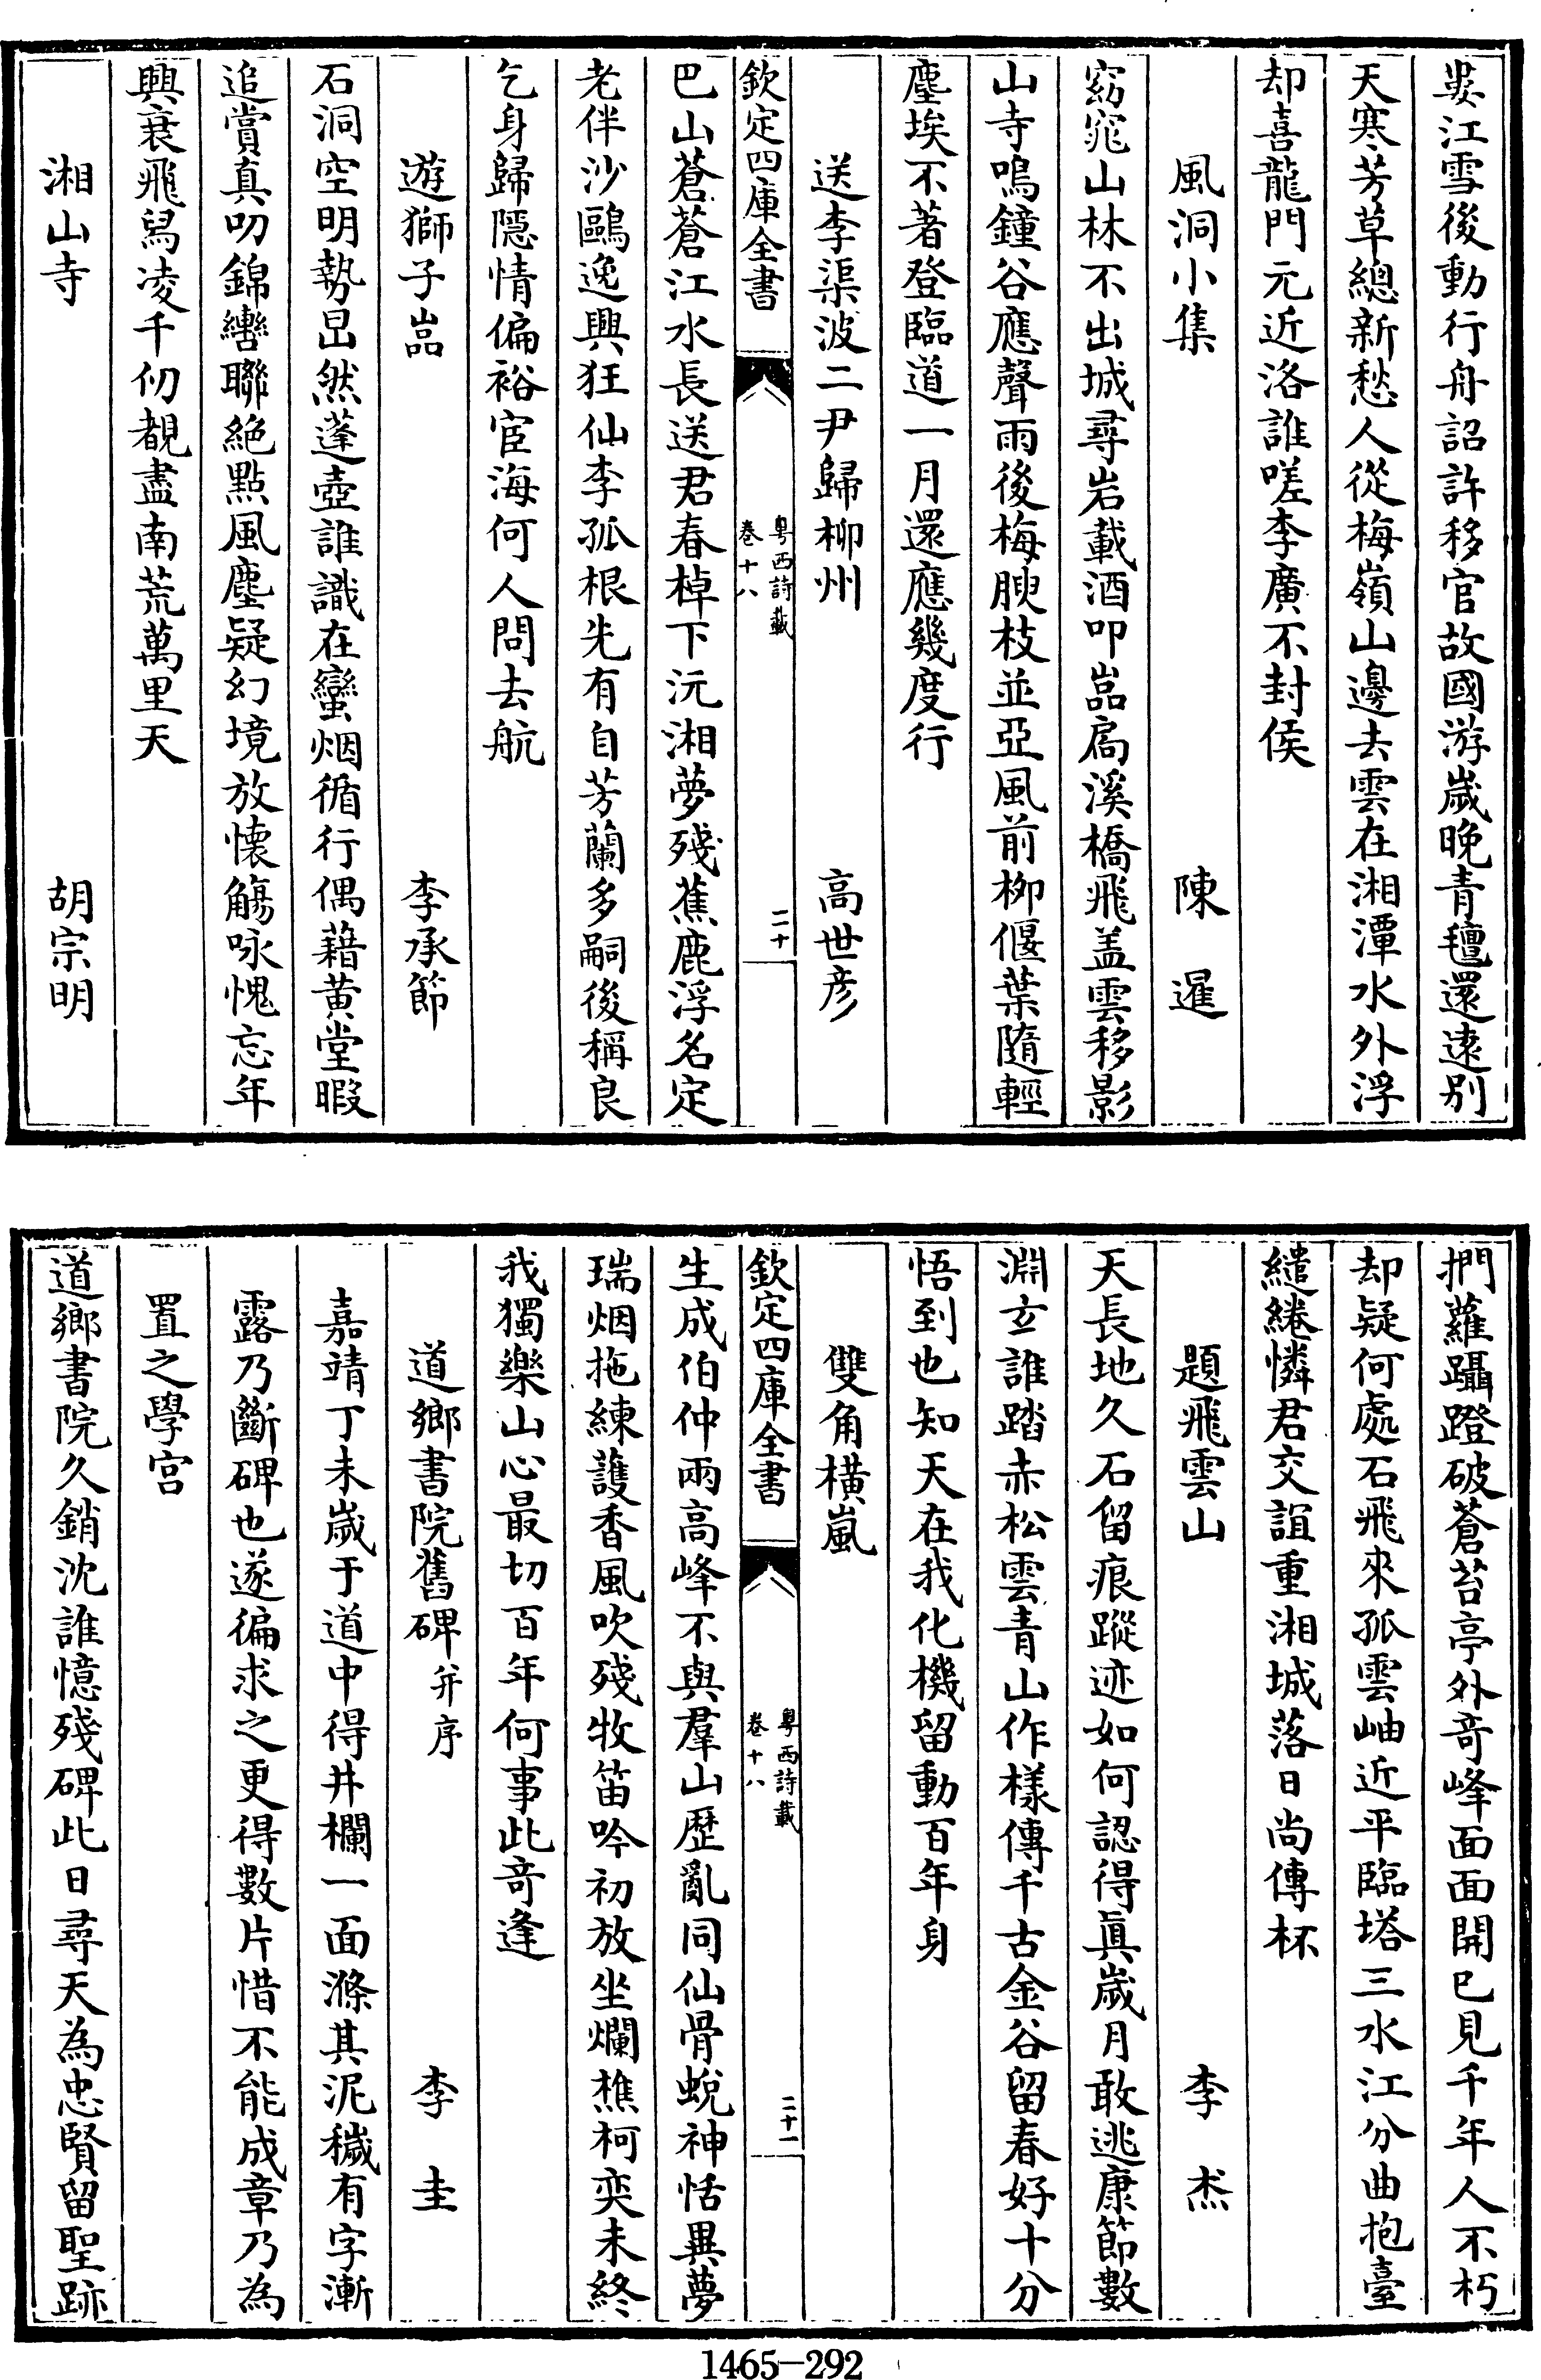 婁江雪後動行舟詔許移官故國游嵗晚青氊還逺别
天寒芳草總新愁人從梅嶺山邊去雲在湘潭水外浮
却喜龍門元近洛誰嗟李廣不封侯
風洞小集　陳　暹
窈窕山林不出城尋岩載酒叩嵓扄溪橋飛盖雲移影
山寺鳴鐘谷應聲雨後梅腴枝並亞風前栁偃葉隨輕
塵埃不著登臨道一月還應幾度行
送李渠波二尹歸栁州　高世彦
欽定四庫全書　粤西詩載　卷十八　二十
巴山蒼蒼江水長送君春棹下沅湘夢殘蕉鹿浮名定
老伴沙鷗逸興狂仙李孤根先有自芳蘭多嗣後稱良
乞身歸隱情偏裕宦海何人問去航
遊獅子嵓　李承節
石洞空明勢呂然蓬壺誰識在蠻烟循行偶藉黄堂暇
追賞真叨錦轡聯絶點風塵疑幻境放懐觴咏愧忘年
興衰飛舄凌千仞覩盡南荒萬里天
湘山寺　胡宗明
捫蘿躡蹬破蒼苔亭外竒峰面面開已見千年人不朽
却疑何處石飛來孤雲岫近平臨塔三水江分曲抱臺
繾綣憐君交誼重湘城落日尚傳杯
題飛雲山　李　杰
天長地久石留痕蹤迹如何認得眞嵗月敢逃康節數
淵玄誰踏赤松雲青山作様傳千古金谷留春好十分
悟到也知天在我化機留動百年身
雙角横嵐
欽定四庫全書　粤西詩載　卷十八　二十一
生成伯仲兩高峰不與羣山歴亂同仙骨蛻神恬異夢
瑞烟拖練䕶香風吹殘牧笛吟初放坐爛樵柯奕未終
我獨樂山心最切百年何事此竒逢
道鄉書院舊碑并序　李　圭
嘉靖丁未嵗于道中得井欄一面滌其泥穢有字漸
露乃斷碑也遂徧求之更得數片惜不能成章乃為
置之學宫
道鄉書院久銷沈誰憶殘碑此日尋天為忠賢留聖跡
1465-292